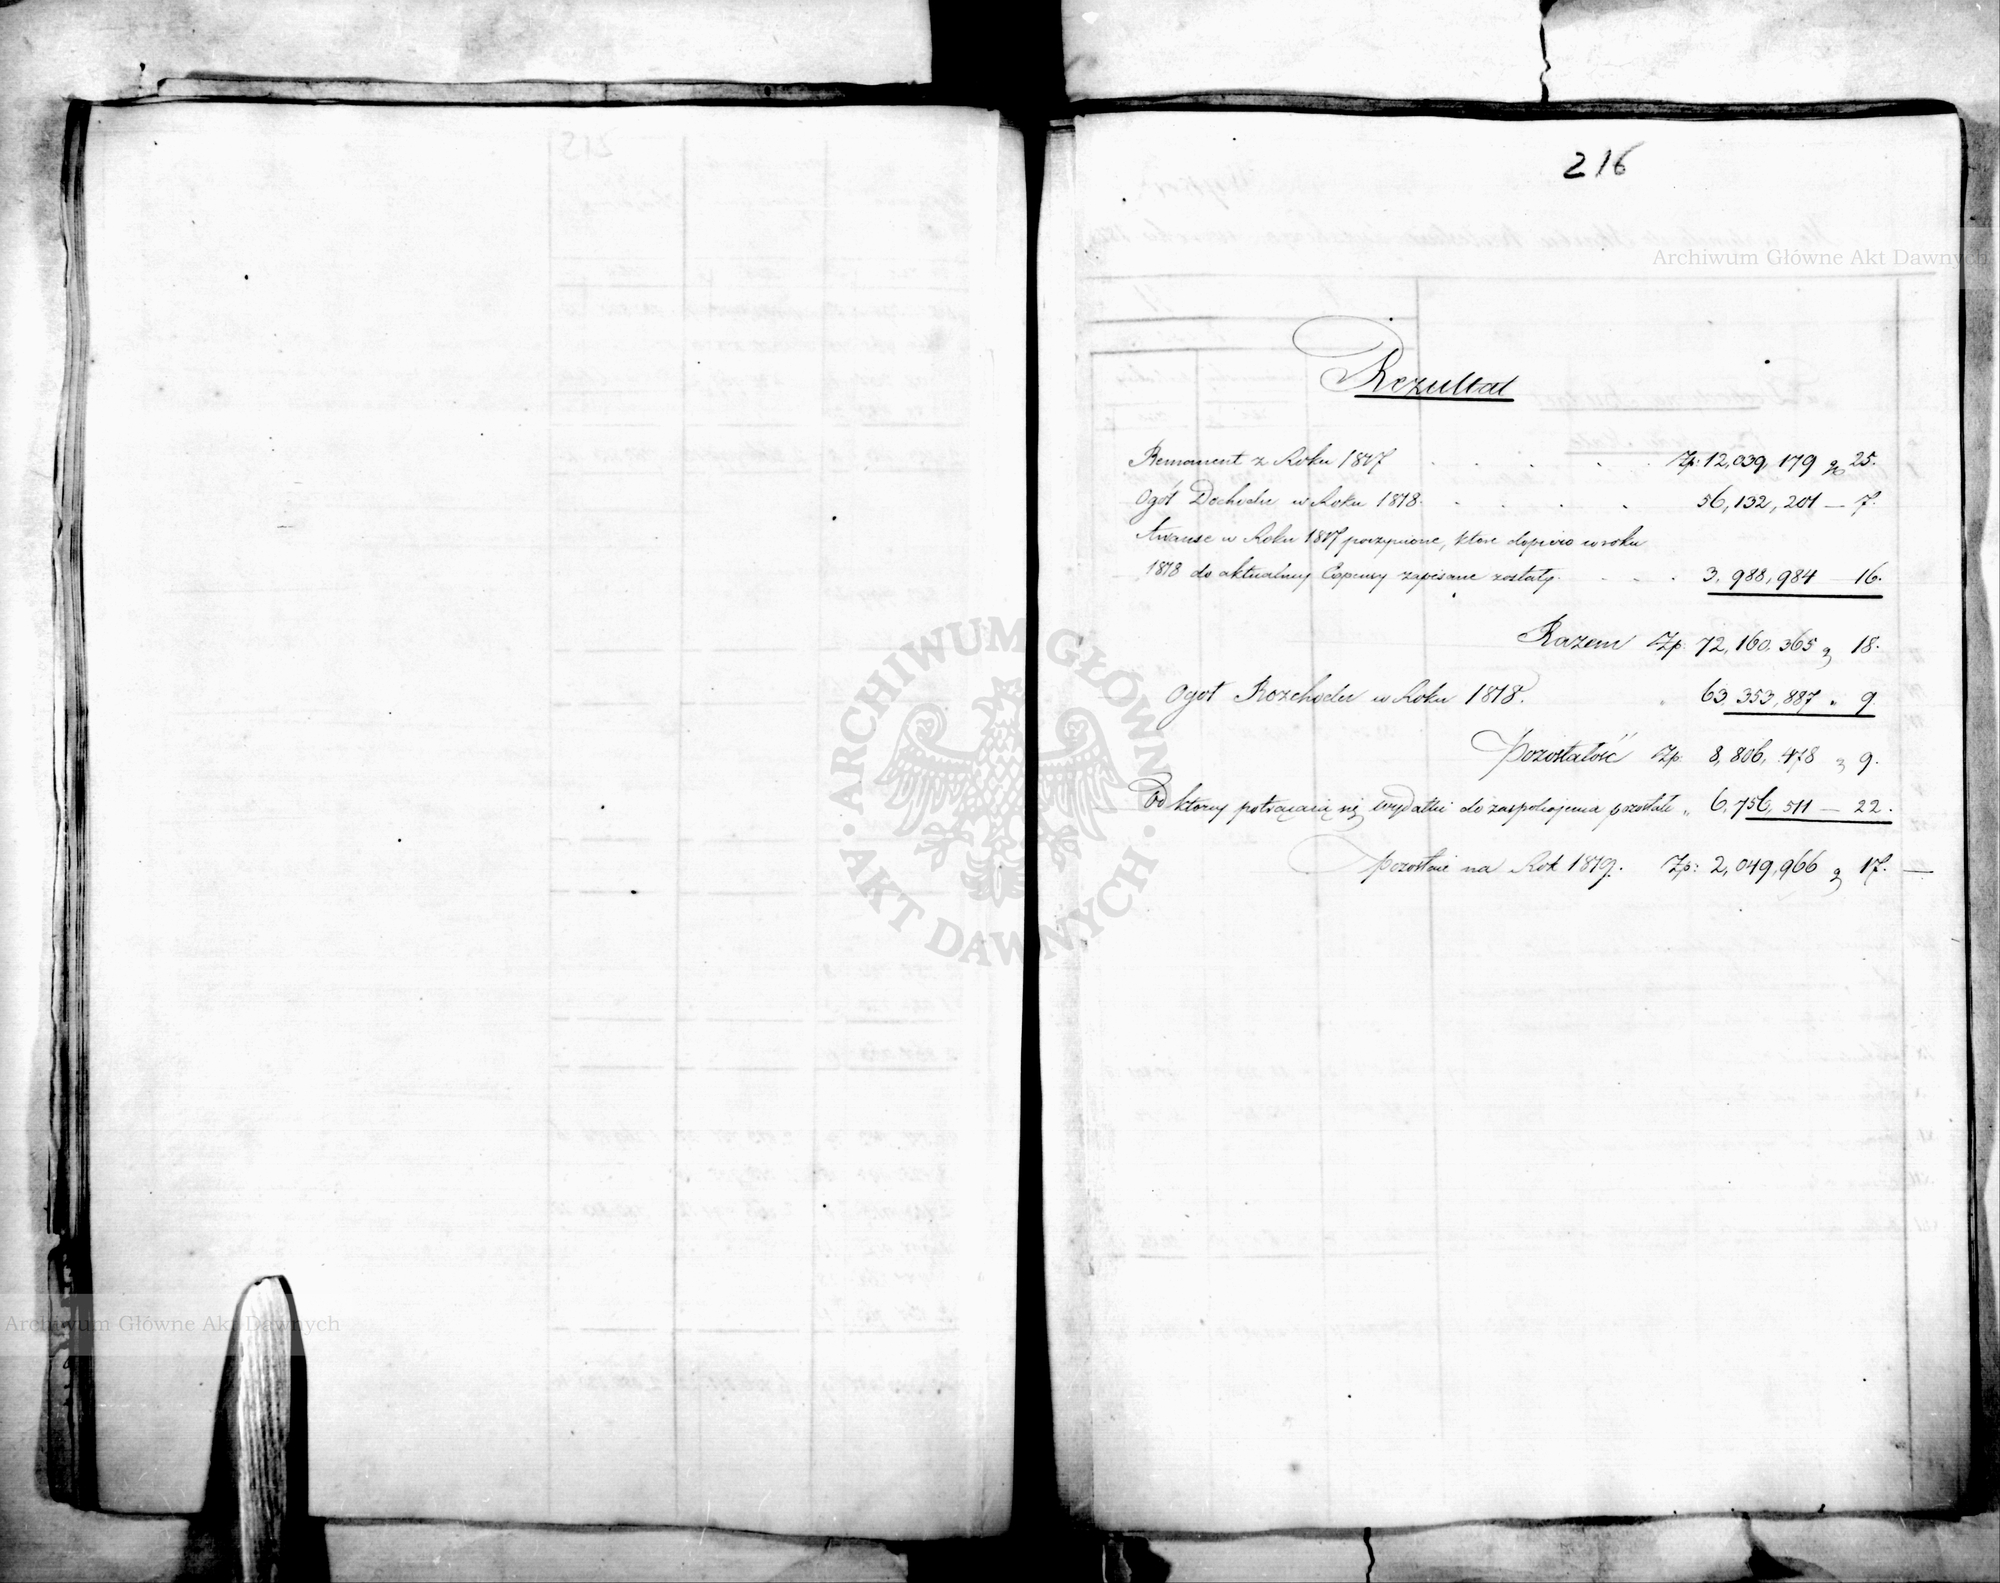 216
Archiwum Główne Akt Dawnych
Rezultat
Remanent z Roku 1817 . . . . . Zp: 12,039,179 gr 25.
Ogół Dochodu w Roku 1818. . . . . 56,132,201 — 7.
Awanse w Roku 1817 poczynione, które dopiero w roku
1818 do aktualney Expensy zapisane zostały. . . . 3,988,984 — 16.
Razem Zp: 72,160,365 g 18.
Ogół Rozchodu w Roku 1818. . 63,353,887 „ 9
Pozostałość Zp: 8,806,478 g 9.
Od ktorey potrącaiąc się wydatki do zaspokojenia pozostałe „ 6,756,511 — 22.
Pozostaie na Rok 1819. Zp: 2,049,966 g 17. —
ARCHIWUM GŁÓWNE
AKT DAWNYCH
Archiwum Główne Akt Dawnych